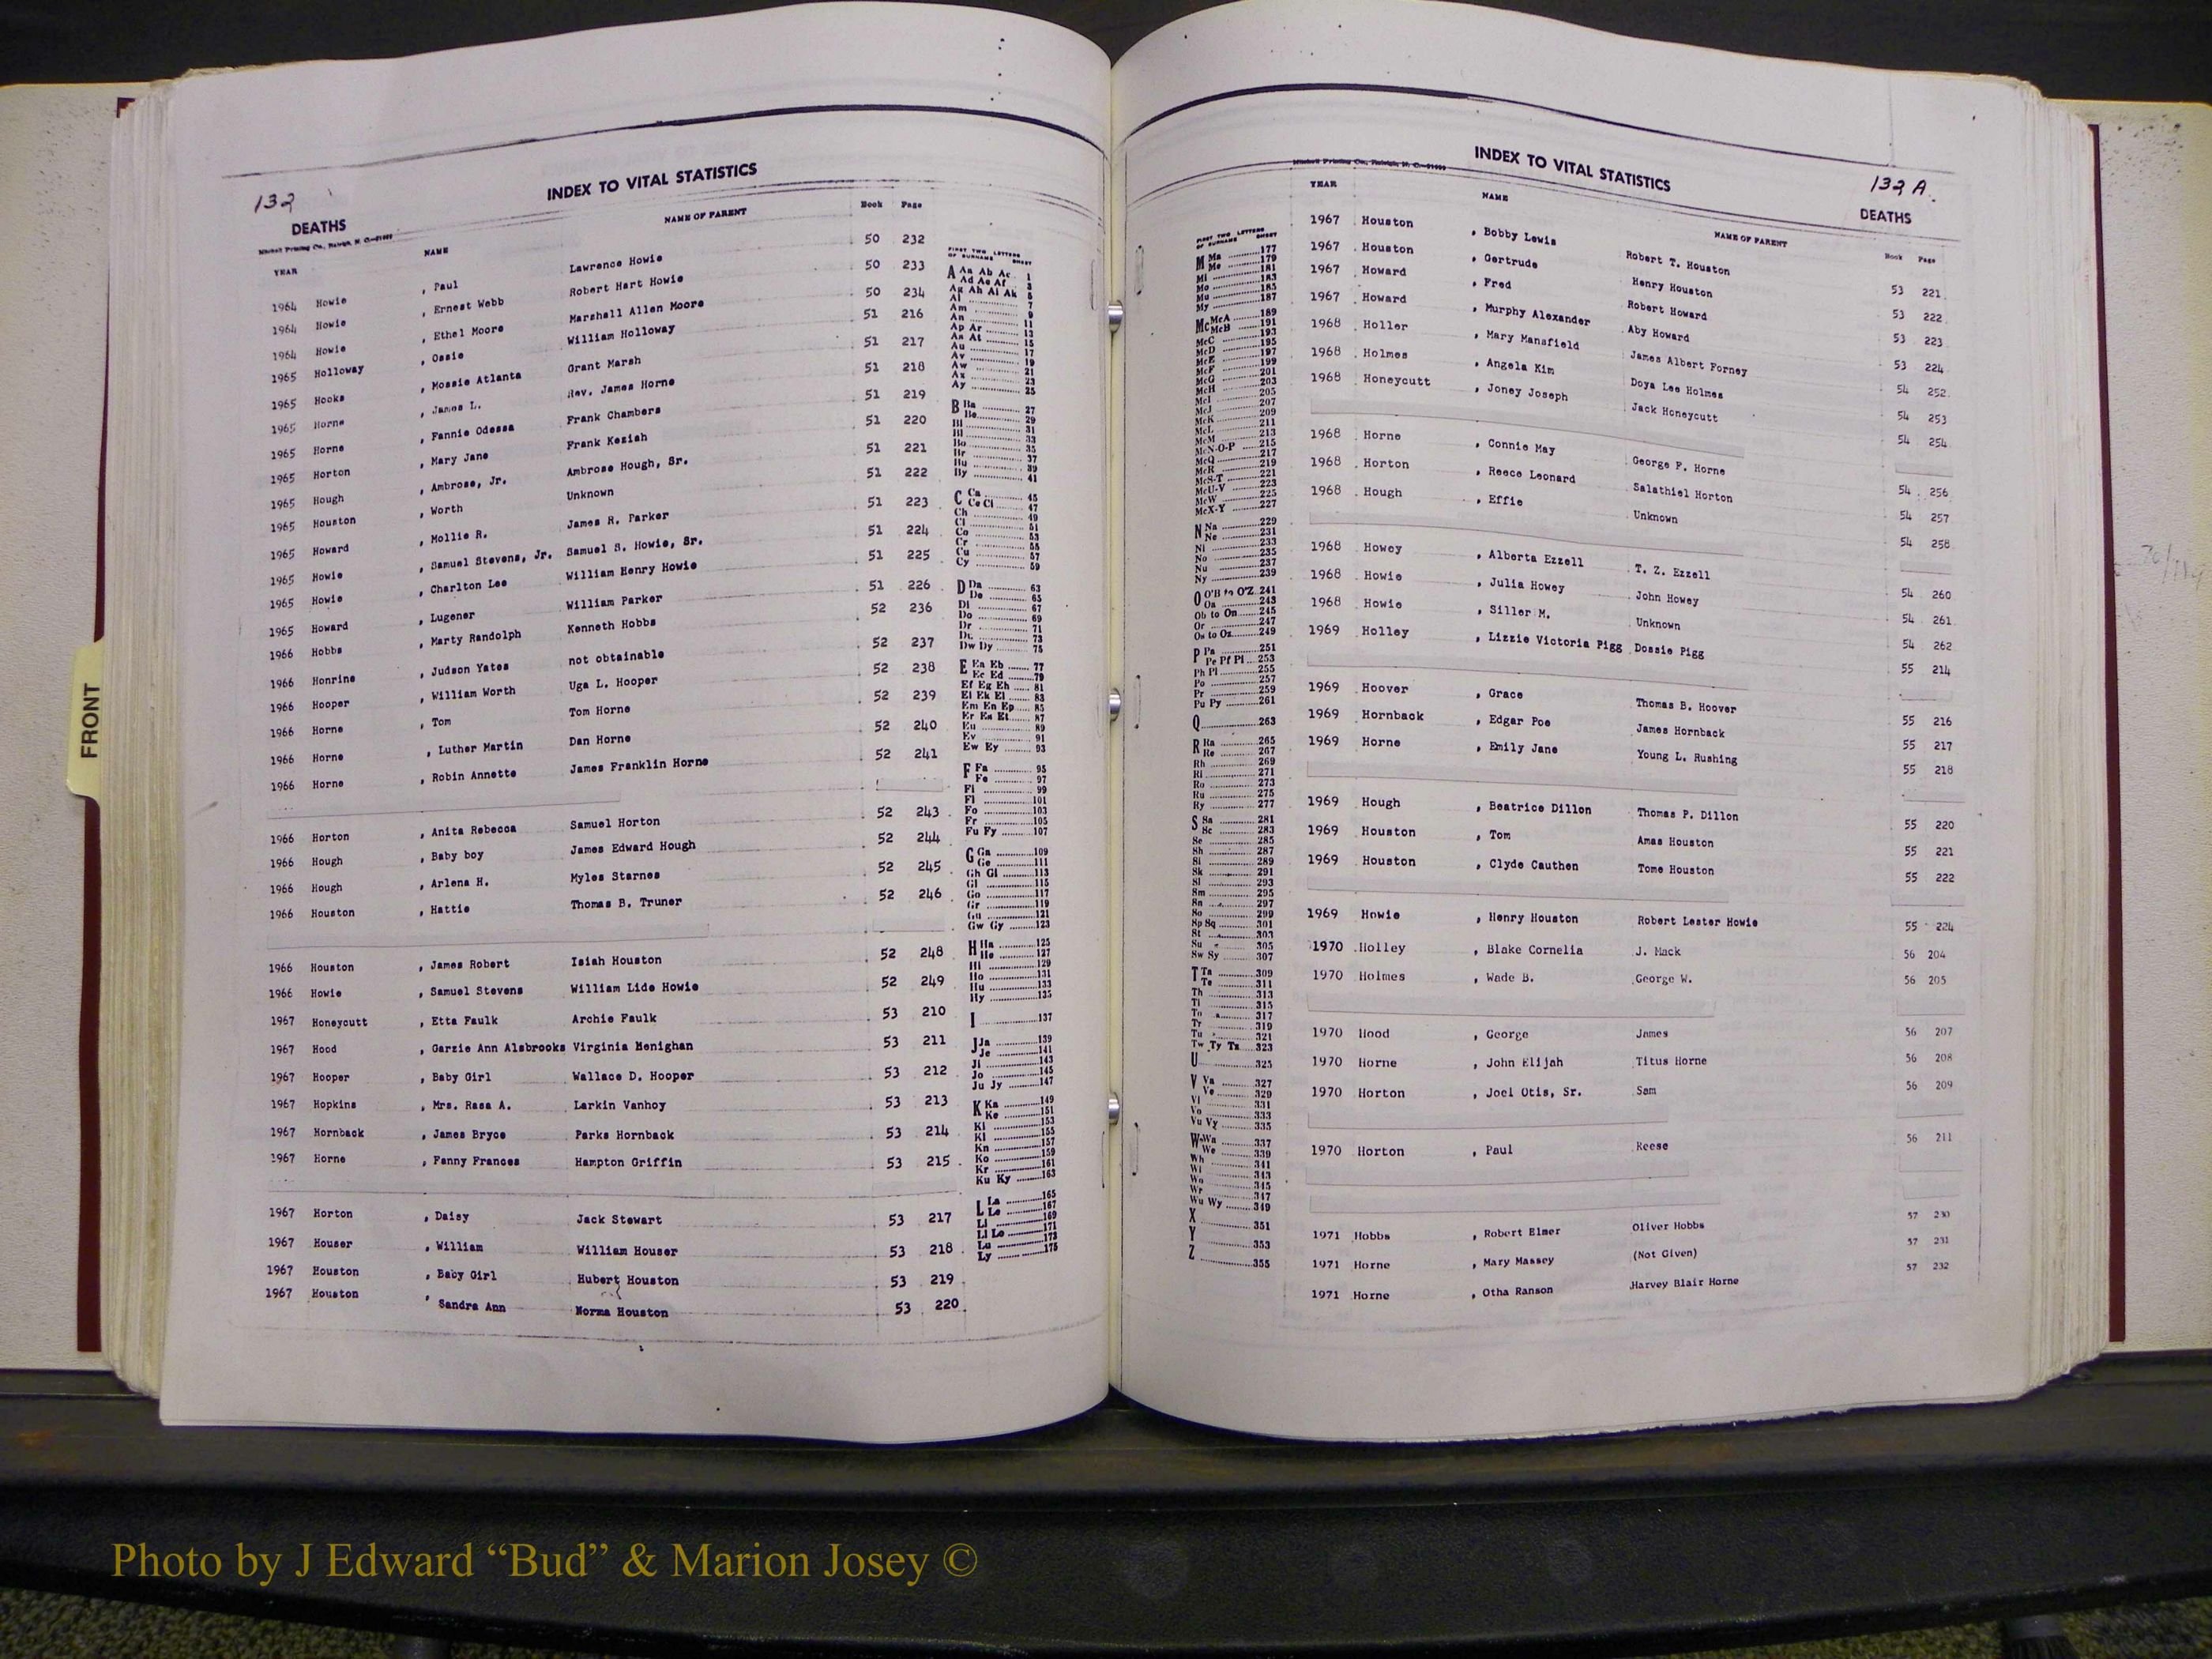 132
INDEX TO VITAL STATISTICS
DEATHS
Mitchell Printing Co., Raleigh, N. C.
YEAR NAME NAME OF PARENT Book Page
1964 Howie , Paul Lawrence Howie 50 232
1964 Howie , Ernest Webb Robert Hart Howie 50 233
1964 Howie , Ethel Moore Marshall Allen Moore 50 234
1965 Holloway , Ossie William Holloway 51 216
1965 Hooks , Mossie Atlanta Grant Marsh 51 217
1965 Horne , James L. Rev. James Horne 51 218
1965 Horne , Fannie Odessa Frank Chambers 51 219
1965 Horton , Mary Jane Frank Keziah 51 220
1965 Hough , Ambrose, Jr. Ambrose Hough, Sr. 51 221
1965 Houston , Worth Unknown 51 222
1965 Howard , Mollie R. James R. Parker 51 223
1965 Howie , Samuel Stevens, Jr. Samuel S. Howie, Sr. 51 224
1965 Howie , Charlton Lee William Henry Howie 51 225
1965 Howard , Lugener William Parker 51 226
1966 Hobbs , Marty Randolph Kenneth Hobbs 52 236
1966 Honrine , Judson Yates not obtainable 52 237
1966 Hooper , William Worth Uga L. Hooper 52 238
1966 Horne , Tom Tom Horne 52 239
1966 Horne , Luther Martin Dan Horne 52 240
1966 Horne , Robin Annette James Franklin Horne 52 241
1966 Horton , Anita Rebecca Samuel Horton 52 243
1966 Hough , Baby boy James Edward Hough 52 244
1966 Hough , Arlena H. Myles Starnes 52 245
1966 Houston , Hattie Thomas B. Truner 52 246
1966 Houston , James Robert Isiah Houston 52 248
1966 Howie , Samuel Stevens William Lide Howie 52 249
1967 Honeycutt , Etta Faulk Archie Faulk 53 210
1967 Hood , Garzie Ann Alsbrooks Virginia Henighan 53 211
1967 Hooper , Baby Girl Wallace D. Hooper 53 212
1967 Hopkins , Mrs. Rasa A. Larkin Vanhoy 53 213
1967 Hornback , James Bryce Parks Hornback 53 214
1967 Horne , Fanny Frances Hampton Griffin 53 215
1967 Horton , Daisy Jack Stewart 53 217
1967 Houser , William William Houser 53 218
1967 Houston , Baby Girl Hubert Houston 53 219
1967 Houston , Sandra Ann Norma Houston 53 220
FIRST TWO LETTERS
OF SURNAME SHEET
A Aa Ab Ac 1
Ad Ae Af 3
Ag Ah Ai Ak 5
Al 7
Am 9
An 11
Ap Ar 13
As At 15
Au 17
Av 19
Aw 21
Ax 23
Ay 25
B Ba 27
Be 29
Bi 31
Bl 33
Bo 35
Br 37
Bu 39
By 41
C Ca 45
Ce Ci 47
Ch 49
Cl 51
Co 53
Cr 55
Cu 57
Cy 59
D Da 63
De 65
Di 67
Do 69
Dr 71
Du 73
Dw Dy 75
E Ea Eb 77
Ec Ed 79
Ef Eg Eh 81
Ei Ek El 83
Em En Ep 85
Er Es Et 87
Eu 89
Ev 91
Ew Ey 93
F Fa 95
Fe 97
Fi 99
Fl 101
Fo 103
Fr 105
Fu Fy 107
G Ga 109
Ge 111
Gh Gi 113
Gl 115
Go 117
Gr 119
Gu 121
Gw Gy 123
H Ha 125
He 127
Hi 129
Ho 131
Hu 133
Hy 135
I 137
J Ja 139
Je 141
Ji 143
Jo 145
Ju Jy 147
K Ka 149
Ke 151
Ki 153
Kl 155
Kn 157
Ko 159
Kr 161
Ku Ky 163
L La 165
Le 167
Li 169
Ll Lo 171
Lu 173
Ly 175
132 A.
INDEX TO VITAL STATISTICS
Mitchell Printing Co., Raleigh, N. C.
DEATHS
YEAR NAME NAME OF PARENT Book Page
FIRST TWO LETTERS
OF SURNAME SHEET
M Ma 177
Me 179
Mi 181
Mo 183
Mu 185
My 187
Mc McA 189
McB 191
McC 193
McD 195
McE 197
McF 199
McG 201
McH 203
McI 205
McJ 207
McK 209
McL 211
McM 213
McN-O-P 215
McQ 217
McR 219
McS-T 221
McU-V 223
McW 225
McX-Y 227
N Na 229
Ne 231
Ni 233
No 235
Nu 237
Ny 239
O O'B to O'Z 241
Oa 243
Ob to On 245
Or 247
Os to Oz 249
P Pa 251
Pe Pf Pi 253
Ph Pl 255
Po 257
Pr 259
Pu Py 261
Q 263
R Ra 265
Re 267
Rh 269
Ri 271
Ro 273
Ru 275
Ry 277
S Sa 281
Sc 283
Se 285
Sh 287
Si 289
Sk 291
Sl 293
Sm 295
Sn 297
So 299
Sp Sq 301
St 303
Su 305
Sw Sy 307
T Ta 309
Te 311
Th 313
Ti 315
To 317
Tr 319
Tu 321
Tw Ty Tz 323
U 325
V Va 327
Ve 329
Vi 331
Vo 333
Vu Vy 335
W Wa 337
We 339
Wh 341
Wi 343
Wo 345
Wr 347
Wu Wy 349
X 351
Y 353
Z 355
1967 Houston , Bobby Lewis Robert T. Houston 53 221
1967 Houston , Gertrude Henry Houston 53 222
1967 Howard , Fred Robert Howard 53 223
1967 Howard , Murphy Alexander Aby Howard 53 224
1968 Holler , Mary Mansfield James Albert Forney 54 252
1968 Holmes , Angela Kim Doya Lee Holmes 54 253
1968 Honeycutt , Joney Joseph Jack Honeycutt 54 254
1968 Horne , Connie May George F. Horne 54 256
1968 Horton , Reece Leonard Salathiel Horton 54 257
1968 Hough , Effie Unknown 54 258
1968 Howey , Alberta Ezzell T. Z. Ezzell 54 260
1968 Howie , Julia Howey John Howey 54 261
1968 Howie , Siller M. Unknown 54 262
1969 Holley , Lizzie Victoria Pigg Dossie Pigg 55 214
1969 Hoover , Grace Thomas B. Hoover 55 216
1969 Hornback , Edgar Poe James Hornback 55 217
1969 Horne , Emily Jane Young L. Rushing 55 218
1969 Hough , Beatrice Dillon Thomas P. Dillon 55 220
1969 Houston , Tom Amas Houston 55 221
1969 Houston , Clyde Cauthen Tome Houston 55 222
1969 Howie , Henry Houston Robert Lester Howie 55 224
1970 Holley , Blake Cornelia J. Mack 56 204
1970 Holmes , Wade B. George W. 56 205
1970 Hood , George James 56 207
1970 Horne , John Elijah Titus Horne 56 208
1970 Horton , Joel Otis, Sr. Sam 56 209
1970 Horton , Paul Reese 56 211
1971 Hobbs , Robert Elmer Oliver Hobbs 57 230
1971 Horne , Mary Massey (Not Given) 57 231
1971 Horne , Otha Ranson Harvey Blair Horne 57 232
FRONT
Photo by J Edward “Bud” & Marion Josey ©